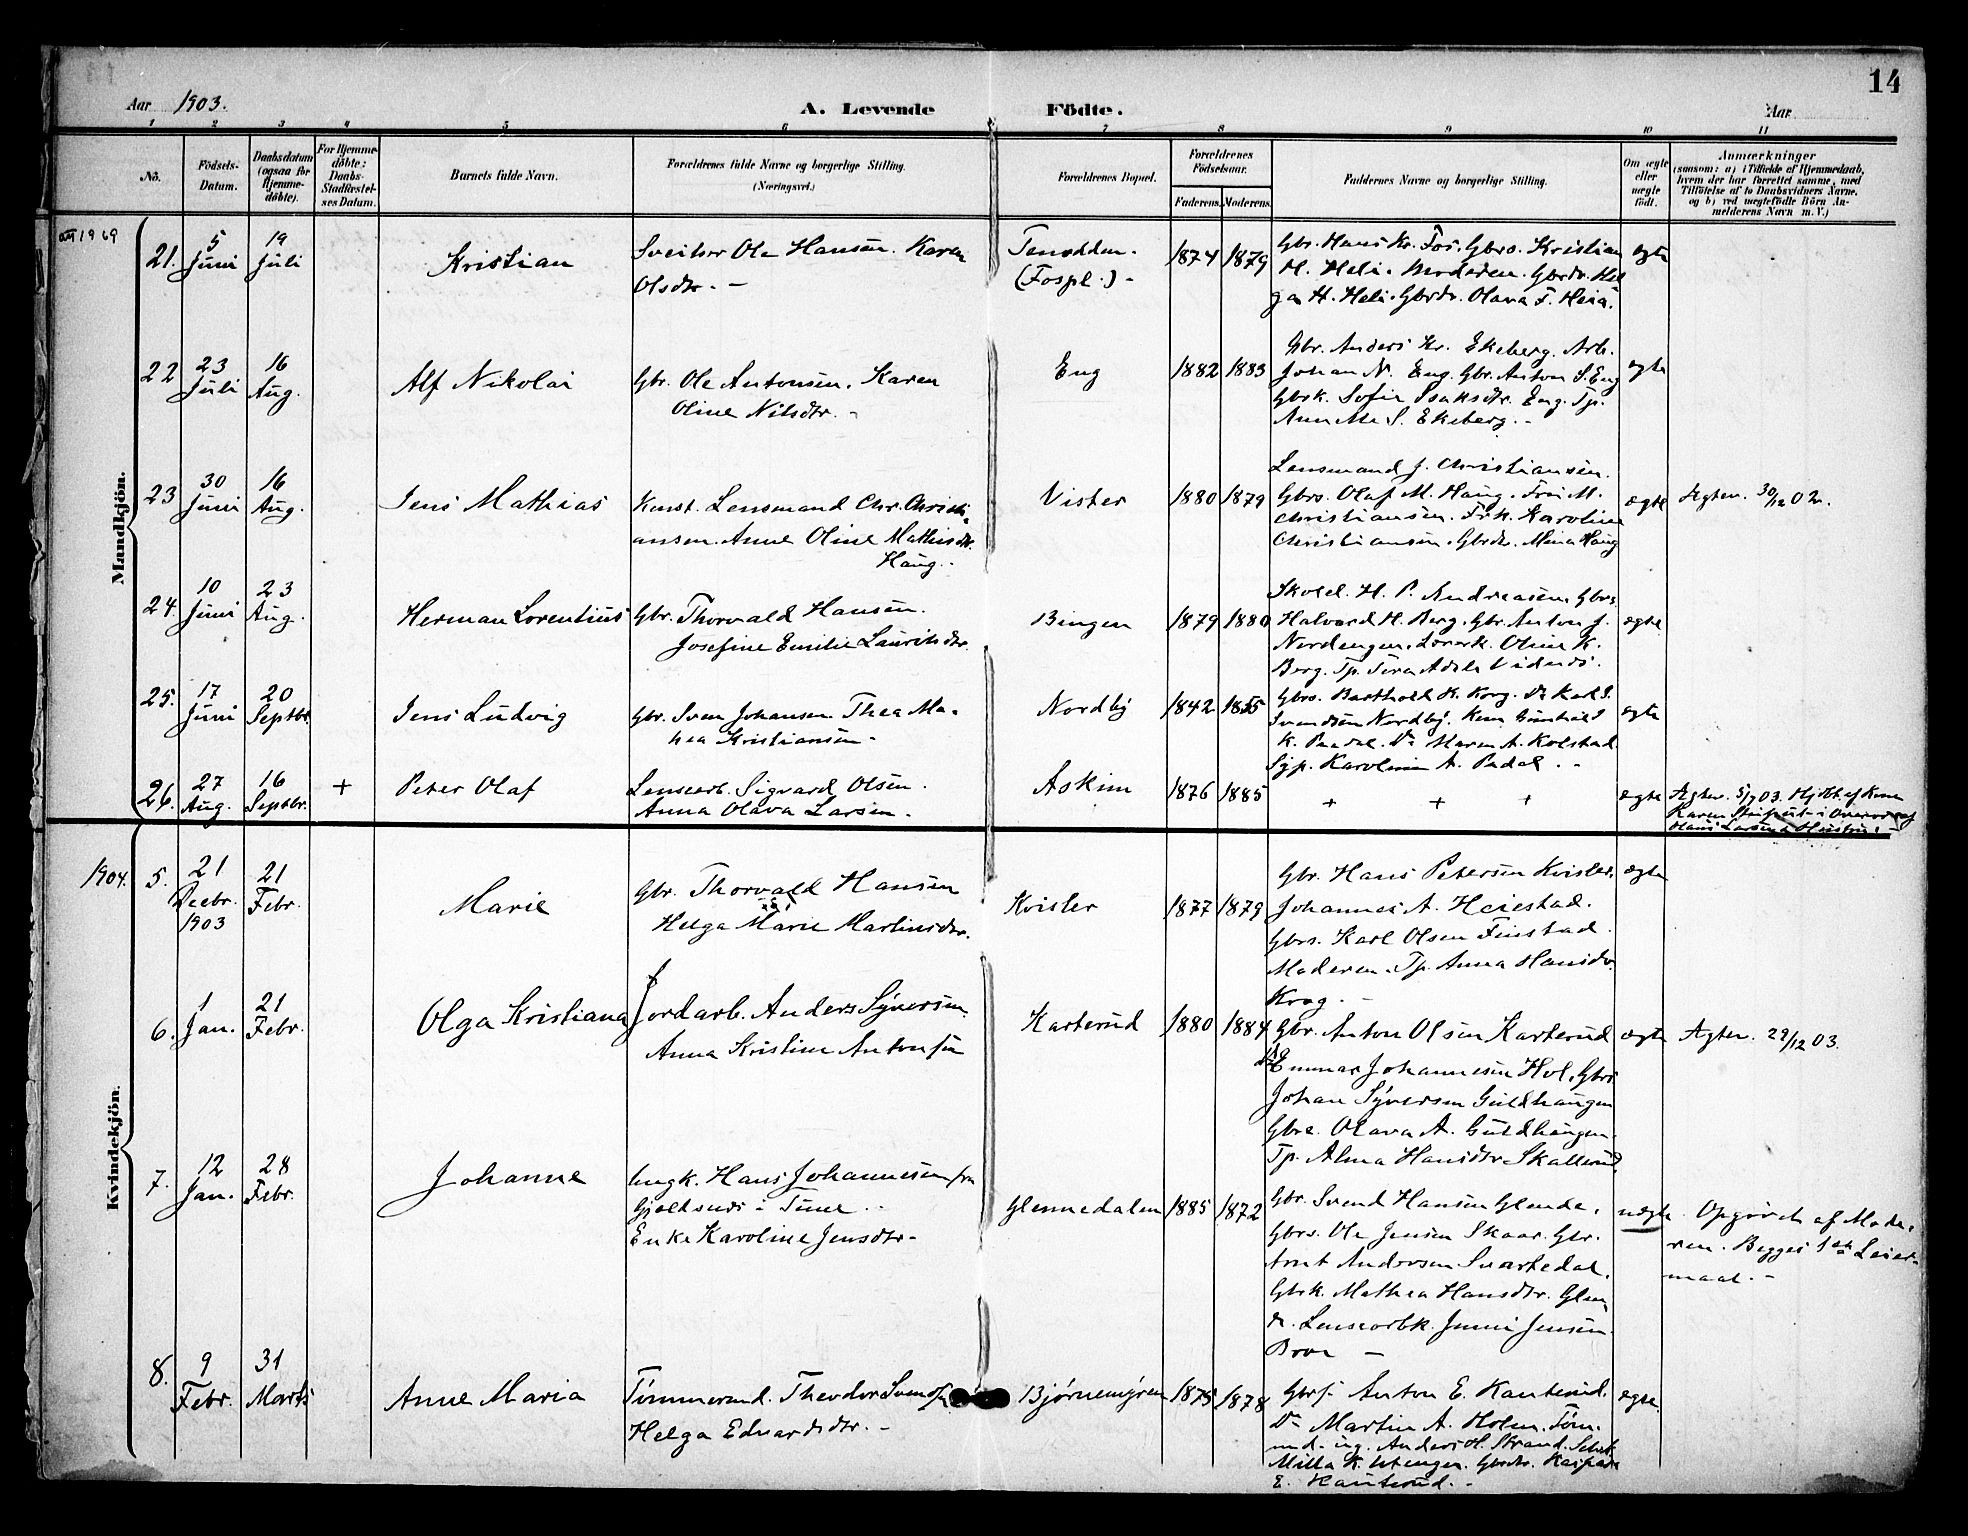 14
Aar 1903.
A. Levende Födte.
Aar
1 2 3 4 5 6 7 8 9 10 11
No.
Födsels-Datum.
Daabsdatum (ogsaa for Hjemme-döbte).
For Hjemme-döbte: Daabs-Stadfæstel-ses Datum.
Barnets fulde Navn.
Forældrenes fulde Navne og borgerlige Stilling. (Næringsvei.)
Forældrenes Bopæl.
Forældrenes Födselsaar.
Faderens. Moderens.
Faddernes Navne og borgerlige Stilling.
Om ægte eller uægte födt.
Anmærkninger
(saasom: a) i Tilfælde af Hjemmedaab, hvem der har forrettet samme, med Tilföielse af to Daabsvidners Navne, og b) ved uægtefödte Börn An-melderens Navn m. V.)
Mandkjön.
21. 5 Juni 19 Juli
Kristian
Sveitser Ole Hansen. Karen
Olsdtr. -
(Fospl.) -
1874 1879
Gbr. Hans Kr. Fos. Gbrs. Kristian
H. Heli. Moderen. Gbrdtr. Hel
ga H. Heli. Gbrdtr. Olava T. Heia.
ægte
22 23 Juli 16 Aug.
Alf Nikolai
Gbr. Ole Antonsen. Karen
Oline Nilsdtr. -
Eng
1882 1883
Gbr. Anders Kr. Ekeberg. Arb.
Johan N. Eng. Gbr. Anton S. Eng
Gbrk. Sofie Isaksdtr. Eng. Tp.
Anne Mie S. Ekeberg. -
ægte
23 30 Juni 16 Aug.
Jens Mathias
Konst. Lensmand Chr. Christi-
ansen. Anne Oline Mathisdtr.
Haug. -
Vister
1880 1879
Lensmand J. Christiansen.
Gbrs. Olaf M. Haug. Frü M.
Christiansen. Frk. Karoline
Christiansen. Gbrdtr. Mina Haug
ægte
Ægtev. 30/12 02.
24 10 Juni 23 Aug.
Herman Lorentius
Gbr. Thorvald Hansen.
Josefine Emilie Lauritsdtr.
Bingen
1879 1880
H. P. Andreasen. Gbrs.
Halvard H. Berg. Gbr. Anton J.
Nordengen. Oline K.
Berg. Tp.
ægte
25. 17 Juni 20 Septbr.
Jens Ludvig
Gbr. Sven Johansen. Thea Ma-
thea Kristiansen -
Nordby
1842 1855
Gbrs. Barthold K. Krog. Do Karl S.
Svendsen Nordby.
K. Maren A. Kolstad.
Syp. Karoline A. -
ægte
26. 27 Aug. 16 Septbr. +
Peter Olaf
Lensearb. Sigvard Olsen.
Anna Olava Larsen. -
Askim
1876 1885
+ + +
ægte
Ægtev. 5/7 03. Hjdbt. af Kone
Karen
Kvindekjön.
1904. 5. 21 Decbr. 1903 21 Febr.
Marie
Gbr. Thorvald Hansen
Helga Marie Martinsdtr.
Kvister
1877 1879
Gbr. Hans Petersen Kvister.
Johannes A. Heiestad.
Gbrs. Karl Olsen Finstad
Moderen. Tp. Anna Hansdtr.
Krog. -
ægte
6. 1 Jan. 21 Febr.
Olga Kristiana
Jordarb. Anders Syversen.
Anna Kristine Antonsen
Karterud
1880 1884
Gbr. Anton Olsen Karterud
Do Emmar Johannesen Hol. Gbrs
Johan Syversen Guldhaugen
Gbrk. Olava A. Guldhaugen.
Tp. Alma Hansdtr Skallerud.
ægte
Ægtev. 29/12 03.
7. 12 Jan. 28 Febr.
Johanne
Ungk. Hans Johannesen fra
i Tune -
Enke Karoline Jensdtr -
Glennedalen
1885 1872
Gbr. Svend Hansen Glende.
Gbrs. Ole Jensen Skaar. Gbr.
Arnt Andersen Svartedal.
Gbrk. Mathea Hansdtr. Glen
de. Lensearbk. Jensen
-
uægte
Opgivet af Mode-
ren. Begges 1ste Leier-
maal. -
8. 9 Febr. 31 Marts
Anne Maria
Tømmermd. Theodor Svendsen
Helga Edvardsdtr. -
Bjørnemyren
1875 1878
Gbrs. Anton E. Kanterud.
Do Martin A. Holm. Tøm
md. Anders H. Strand.
Milla K. Gbrdtr. Kaspara
E. Kanterud. -
ægte.